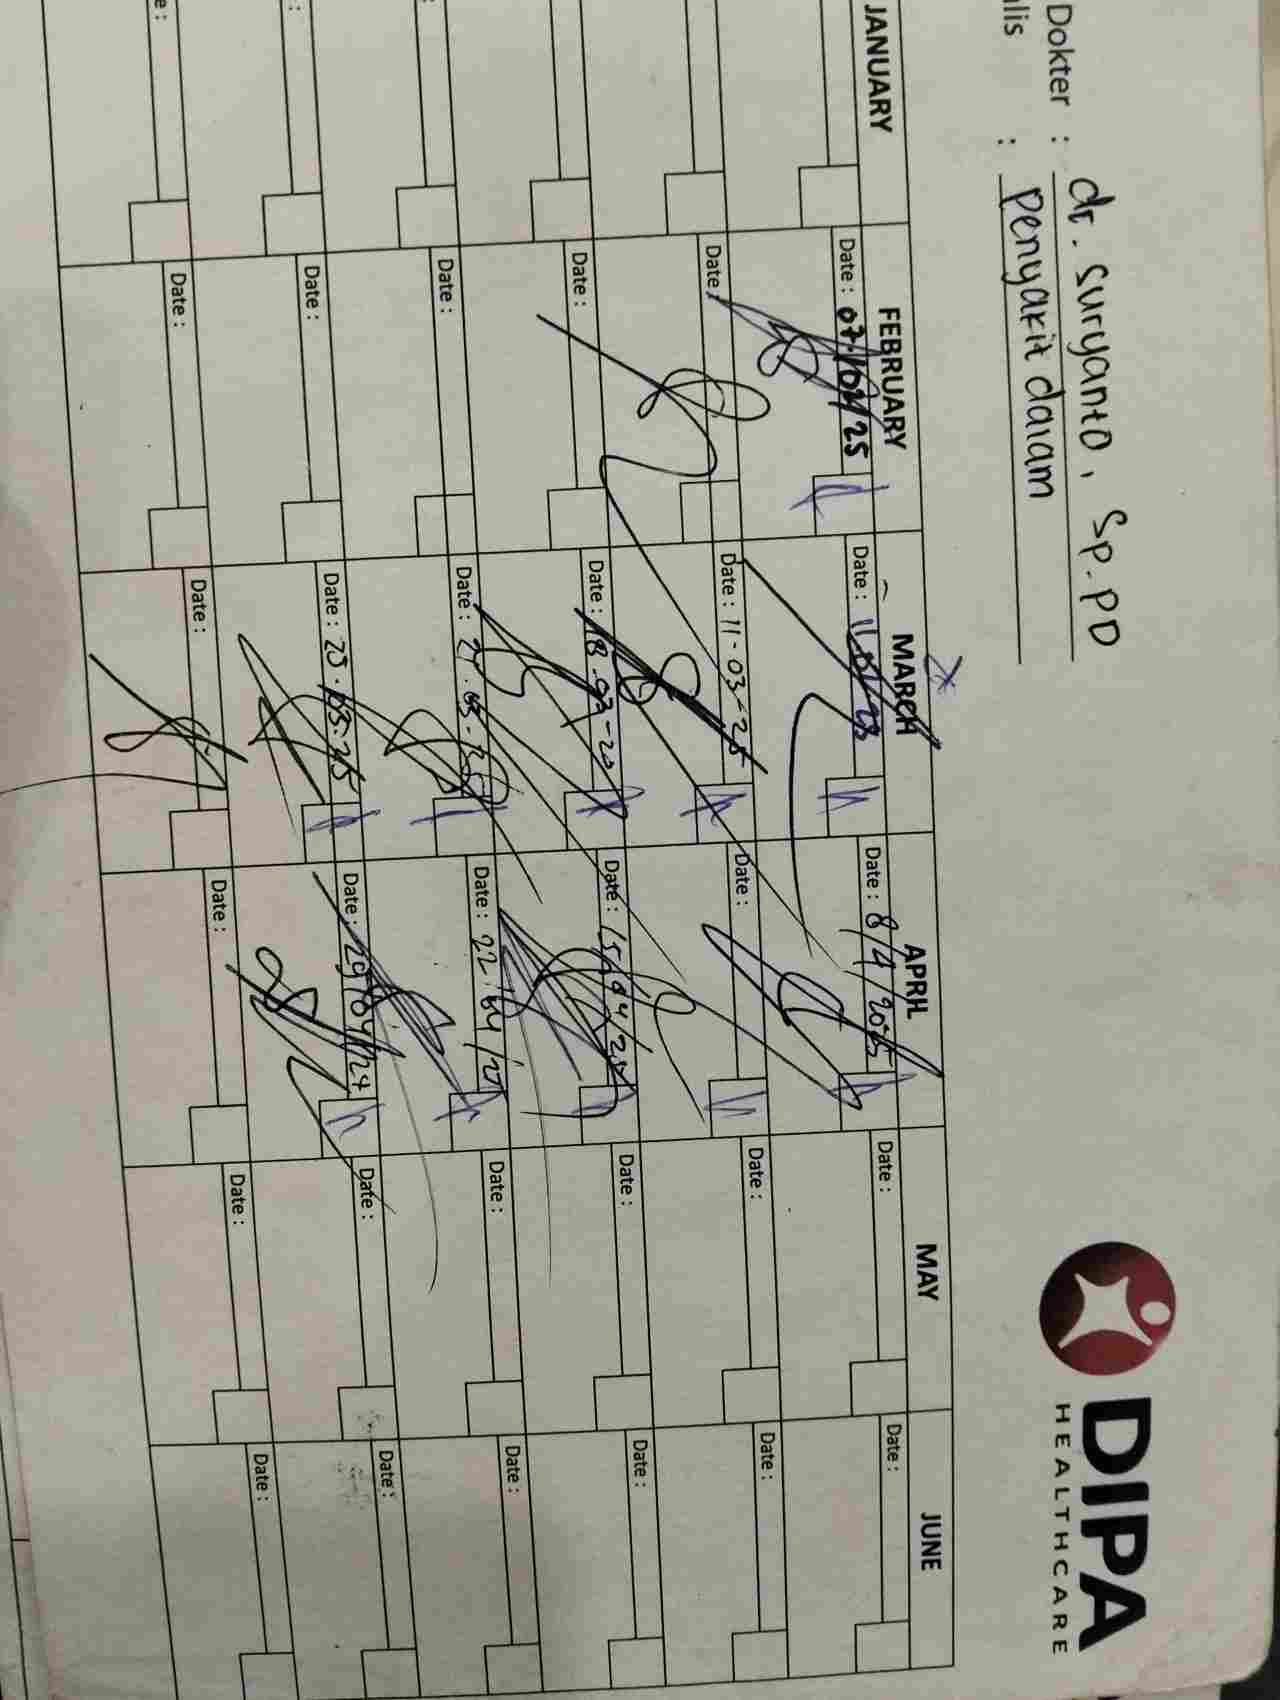 Dokter : dr. Suryanto, Sp.PD
lis : Penyakit dalam
DIPA
HEALTHCARE
JANUARY FEBRUARY MARCH APRIL MAY JUNE
Date : 07/02/25 Date : Date : 8/4/2025 Date : Date :
Date Date : 11-03-25 Date : Date : Date :
Date : Date : 18-03-20 Date : 15/04/25 Date : Date :
Date : Date : 21.03.25 Date : 22/04/25 Date : Date :
: Date : Date : 25.03.25 Date : 29/04/24 Date : Date :
e : Date : Date : Date : Date : Date :